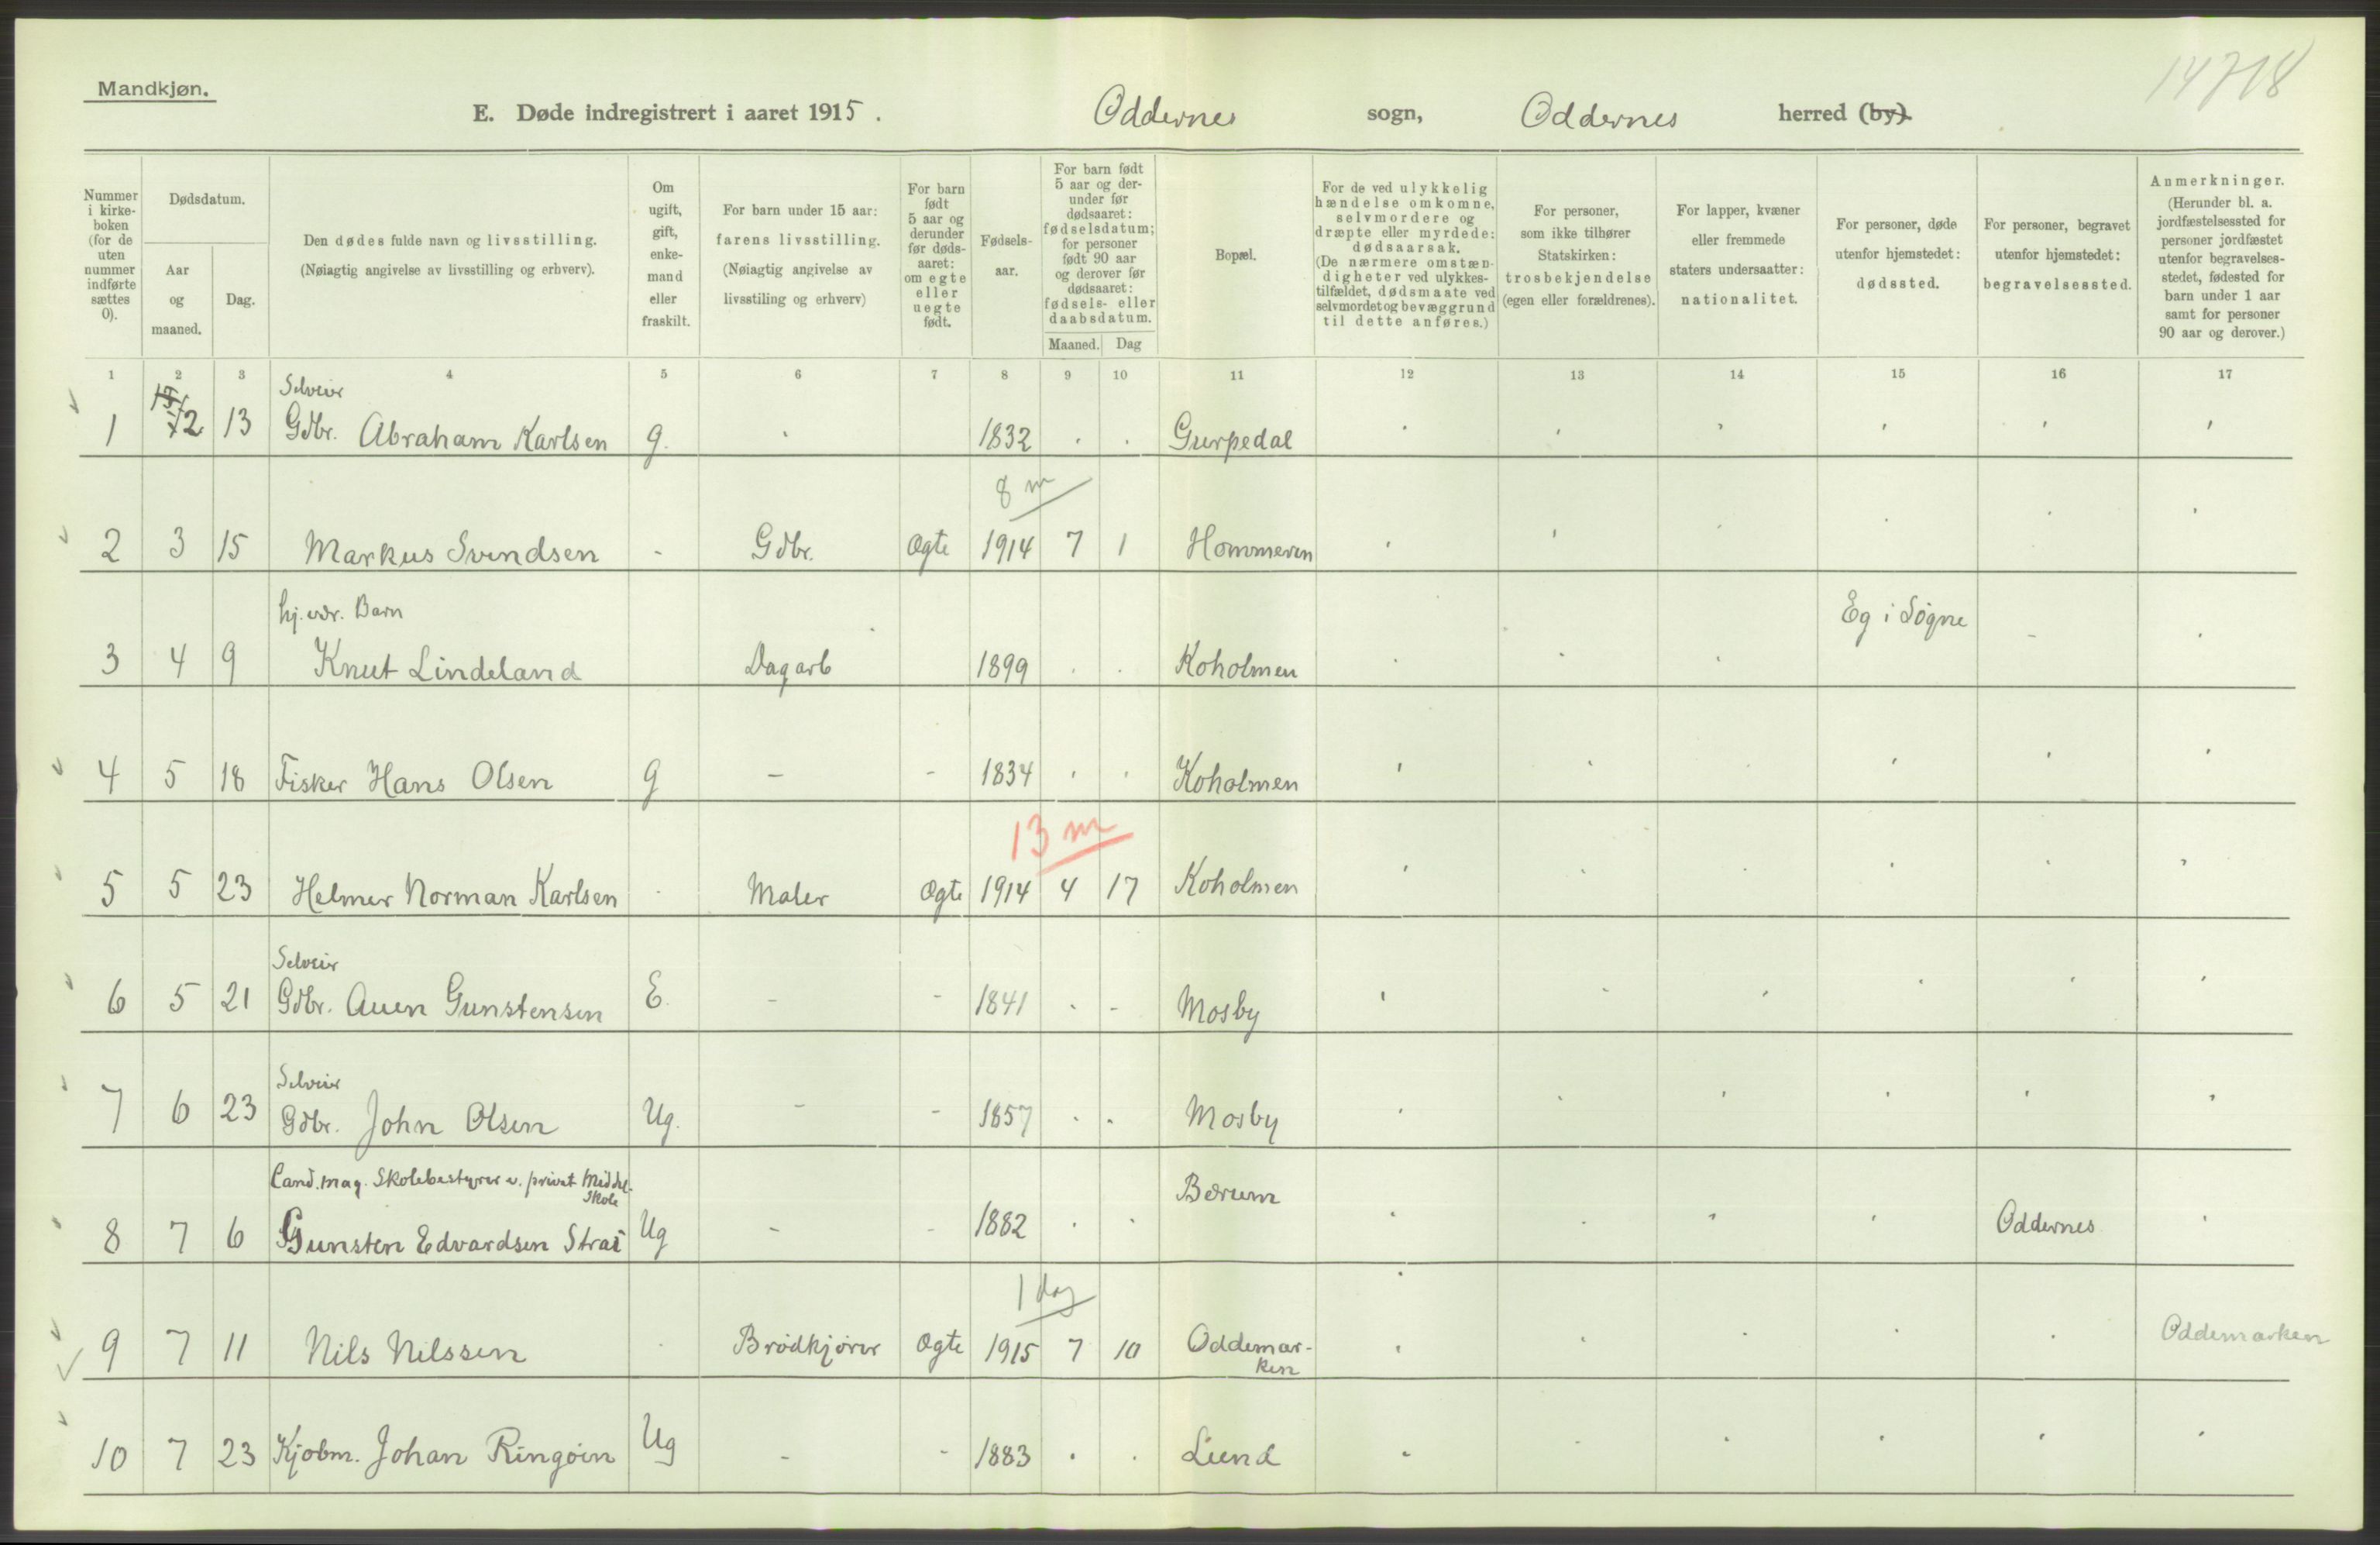 Mandkjøn.
14718
E. Døde indregistrert i aaret 1915. Oddernes sogn, Oddernes herred (by).
Nummer i kirkeboken (for de uten nummer indførte sættes 0).
Dødsdatum.
Aar og maaned.
Dag.
Den dødes fulde navn og livsstilling.
(Nøiagtig angivelse av livsstilling og erhverv).
Om ugift, gift, enkemand eller fraskilt.
For barn under 15 aar:
farens livsstilling.
(Nøiagtig angivelse av livsstiling og erhverv)
For barn født 5 aar og derunder før dødsaaret: om egte eller uegte født.
Fødselsaar.
For barn født 5 aar og derunder før dødsaaret: fødselsdatum; for personer født 90 aar og derover før dødsaaret: fødsels- eller daabsdatum.
Maaned. Dag
Bopæl.
For de ved ulykkelig hændelse omkomne, selvmordere og dræpte eller myrdede: dødsaarsak.
(De nærmere omstændigheter ved ulykkestilfældet, dødsmaate ved selvmordet og bevæggrund til dette anføres.)
For personer, som ikke tilhører Statskirken: trosbekjendelse (egen eller forældrenes).
For lapper, kvæner eller fremmede staters undersaatter: nationalitet.
For personer, døde utenfor hjemstedet: dødssted.
For personer, begravet utenfor hjemstedet: begravelsessted.
Anmerkninger.
(Herunder bl. a. jordfæstelsessted for personer jordfæstet utenfor begravelsesstedet, fødested for barn under 1 aar samt for personer 90 aar og derover.)
1 2 3 4 5 6 7 8 9 10 11 12 13 14 15 16 17
Selveier
1 15/12 13 Gdbr. Abraham Karlsen g. 1832 Gurpedal
8 m
2 3 15 Markus Svendsen - Gdbr. Ægte 1914 7 1 Hommeren
hj. vær. Barn
Eg i Søgne
3 4 9 Knut Lindeland Dagarb 1899 Koholmen -
4 5 18 Fisker Hans Olsen g - - 1834 Koholmen
13 m
5 5 23 Helmer Norman Karlsen Maler Ægte 1914 4 17 Koholmen
Selveier
6 5 21 Gdbr. Auen Gunstensen E. - - 1841 - Mosby
Selveier
7 6 23 Gdbr. John Olsen Ug. - - 1857 Mosby
Cand. mag. Skolebestyrer v. privat Middel.
Skole
8 7 6 Gunsten Edvardsen Strai Ug - - 1882 Bærum Oddernes
1 dag
9 7 11 Nils Nilssen Brødkjører Ægte 1915 7 10 Oddemar-
ken Oddemarken
10 7 23 Kjøbm. Johan Ringøen Ug - - 1883 Lund